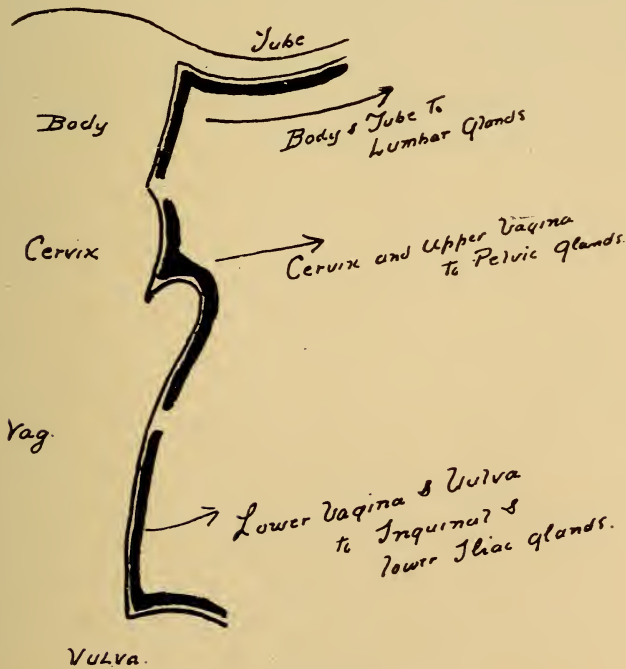 Tube
Body
Body & Tube To
Lumbar Glands
Cervix
Cervix and Upper Vagina
to Pelvic Glands.
Vag.
Lower Vagina & Vulva
to Inquinal &
lower Iliac glands.
Vulva.